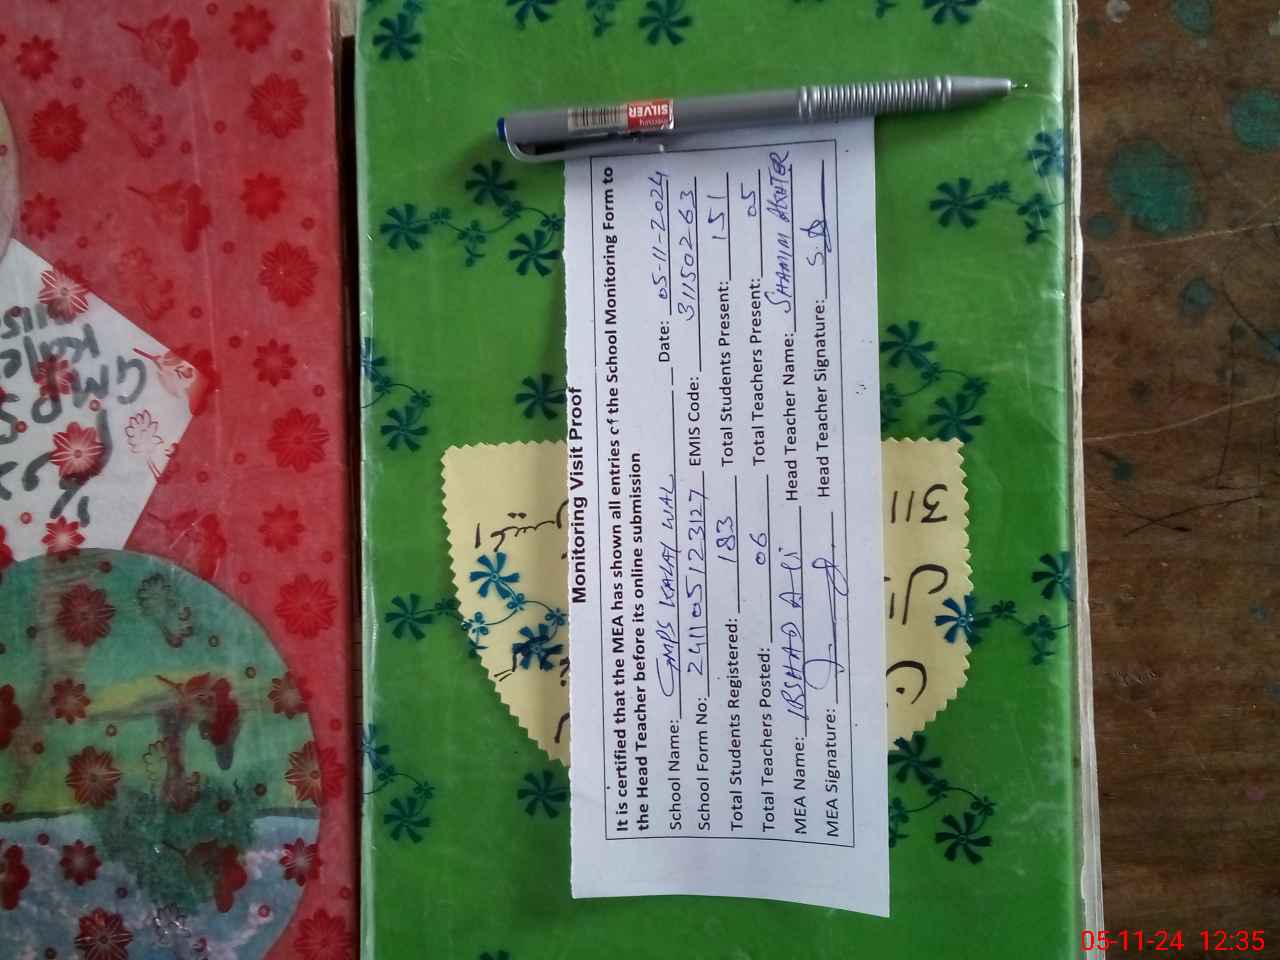 Monitoring Visit Proof
It is certified that the MEA has shown all entries of the School Monitoring Form to
the Head Teacher before its online submission
School Name: GMPS KALAY WAL Date: 05-11-2024
School Form No: 241105123127 EMIS Code: 31150263
Total Students Registered: 183 Total Students Present: 151
Total Teachers Posted: 06 Total Teachers Present: 05
MEA Name: IRSHAD Ali Head Teacher Name: SHAMIM AKHTER
MEA Signature: Head Teacher Signature:
SILVER
GMPS
Kale
311
05-11-24 12:35